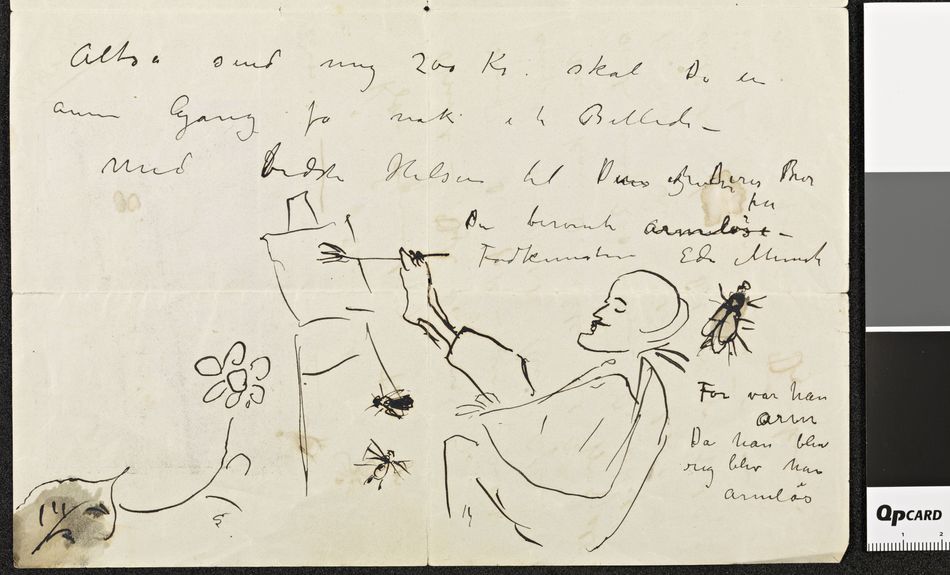 Altså send mig 200 Kr. skal De en
anni Gang få nok et Billede –
Med bedste Hilsen til Deres Bror
fra
Den berømte armløse –
Fodkunstner Edv Munch
Før var han
arm
Da han blev
rig blev han
armlös
QPCARD
1 2